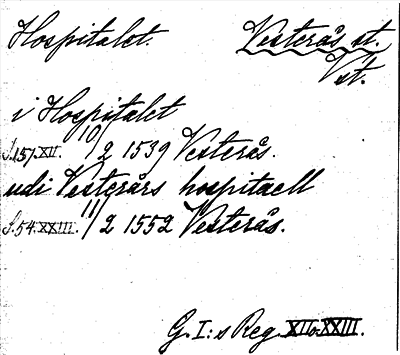 Hospitalet.
Vesterås st.
Vst.
i Hospitalet
S.157.XII. 10/2 1539 Vesterås.
udi Vesterårs hospitaell
S.54.XXIII. 11/2 1552 Vesterås.
G. I:s Reg. XII o. XXIII.